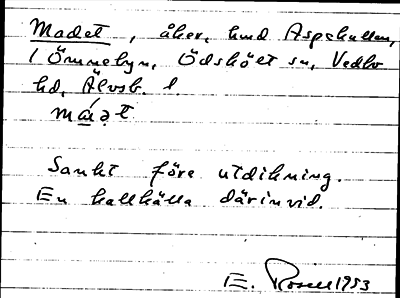 Madet, åker, hmd Aspekullen,
i Ömmebyn, Ödskölt sn, Vedbo
hd, Älvsb. l.
máət
Sankt före utdikning.
En kallkälla därinvid.
E. Rosell 1953